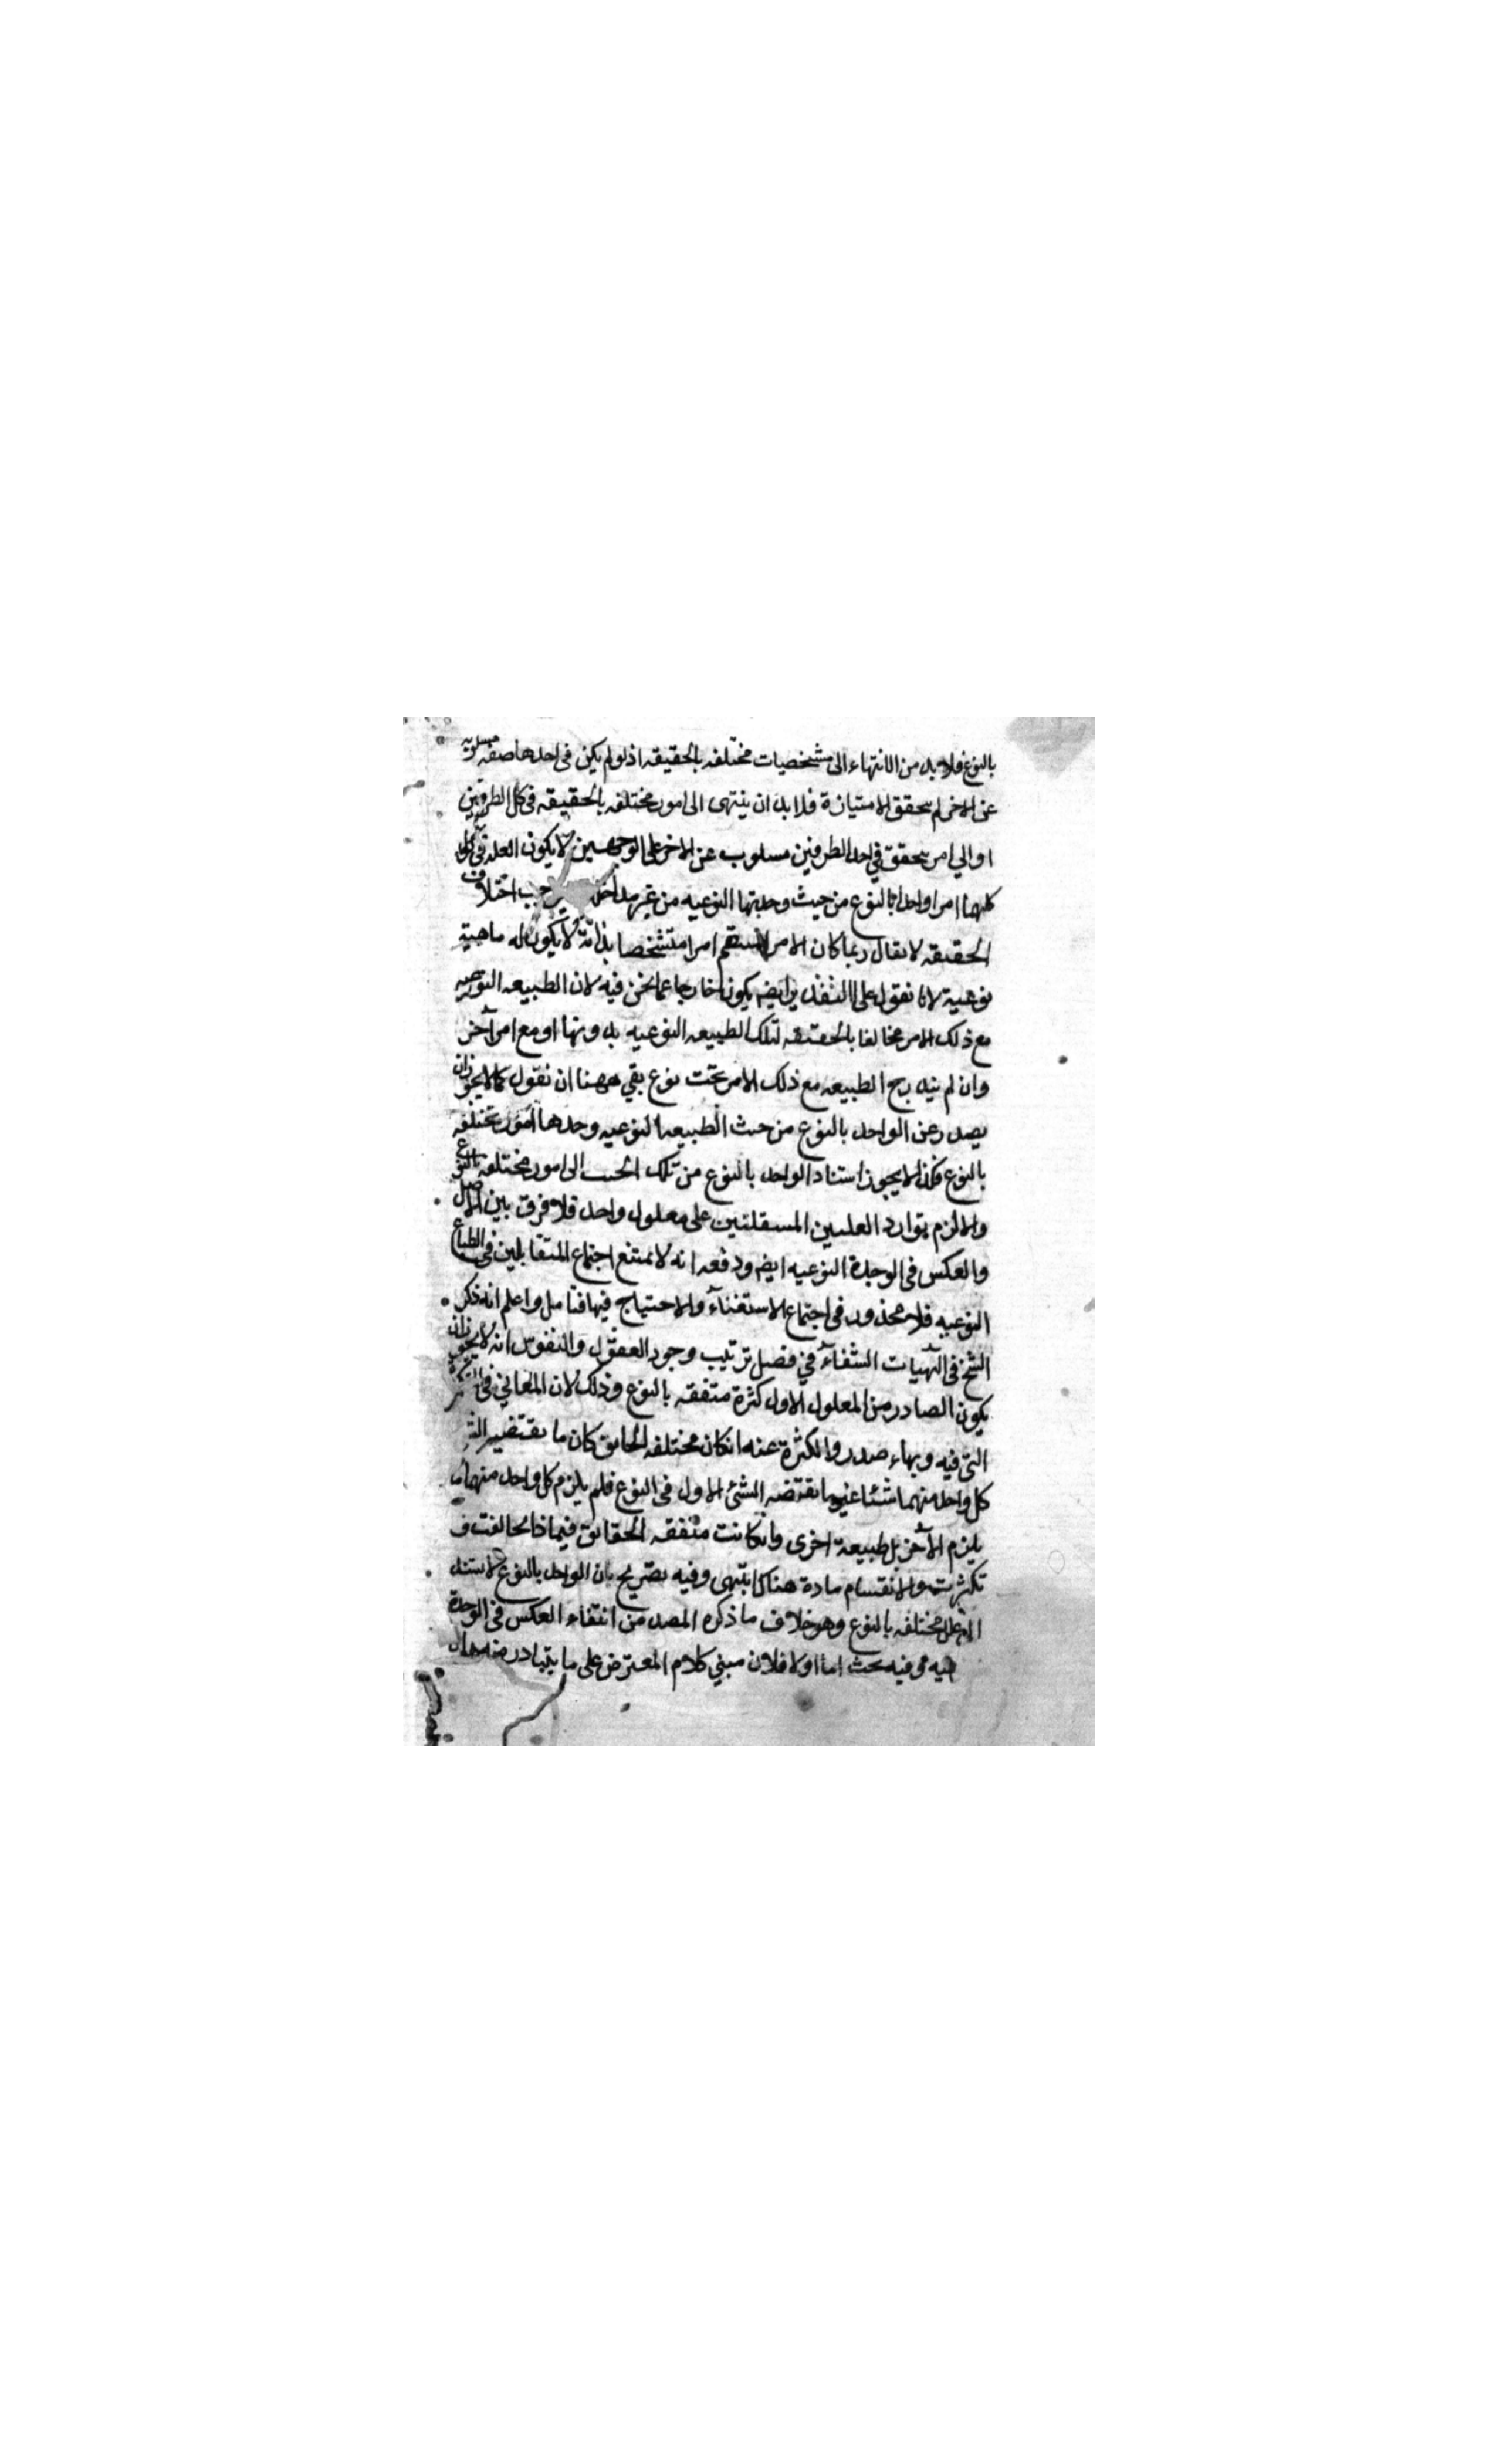 بالنوع فلابد من الانتهاء الى مشخصات مختلفه بالحقيقه اذ لو لم يكن فى احدها صفه مسلوبه
عن الاخر لم يتحقق الامتياز فلابد ان ينتهى الى امور مختلفه بالحقيقه فى كل الطرفين
او الي امر يتحقق في احد الطرفين مسلوب عن الاخر على الوجهين لا يكون العله في
كليهما امرا واحدا بالنوع من حيث وحدتها النوعيه من غير اختلاف
الحقيقه لا يقال ربما كان الامر امرا متشخصا بذاته لا يكون له ماهية
نوعية لانا نقول على التقديرين ايضم يكون خارجا عما نحن فيه لان الطبيعه النوعيه
مع ذلك الامر مخالفا بالحقيقه لتلك الطبيعه النوعيه بدونها او مع امر آخر
وان لم يندرج الطبيعه مع ذلك الامر تحت نوع بقي ههنا ان نقول كما لا يجوز ان
يصدر عن الواحد بالنوع من حيث الطبيعه النوعيه وحدها امور مختلفه
بالنوع فكذا لا يجوز استناد الواحد بالنوع من تلك الى امور مختلفه بالنوع
والا لزم توارد العلتين المستقلتين على معلول واحد فلا فرق بين الاصل
والعكس فى الوحدة النوعيه ايضم ودفعه انه لا يمتنع اجتماع المتقابلين فى الطبايع
النوعيه فلا محذور فى اجتماع الاستغناء والاحتياج فيها فتامل واعلم انه ذكر
الشيخ فى آلهيات الشفاء في فصل ترتيب وجود العقول والنفوس انه لا يجوز ان
يكون الصادر من المعلول الاول كثرة متفقه بالنوع وذلك لان المعاني
التى فيه وبها صدر والكثرة عنه ان كان مختلفه الحقايق كان ما يقتضيه
كل واحد منهما شيئا غير ما يقتضيه الشئ الاول فى النوع فلم يلزم كل واحد منهما ما
يلزم الآخر بل طبيعة اخرى وان كانت متفقه الحقايق فيما ذا تخالفت و
تكثرت ولا انقسام مادة هناك انتهى وفيه تصريح بان الواحد بالنوع لا يستند
الى علل مختلفه بالنوع وهو خلاف ما ذكره المصد من انتفاء العكس فى الوحدة
وفيه بحث اما اولا فلان مبني كلام المعترض على ما يتبادر منه